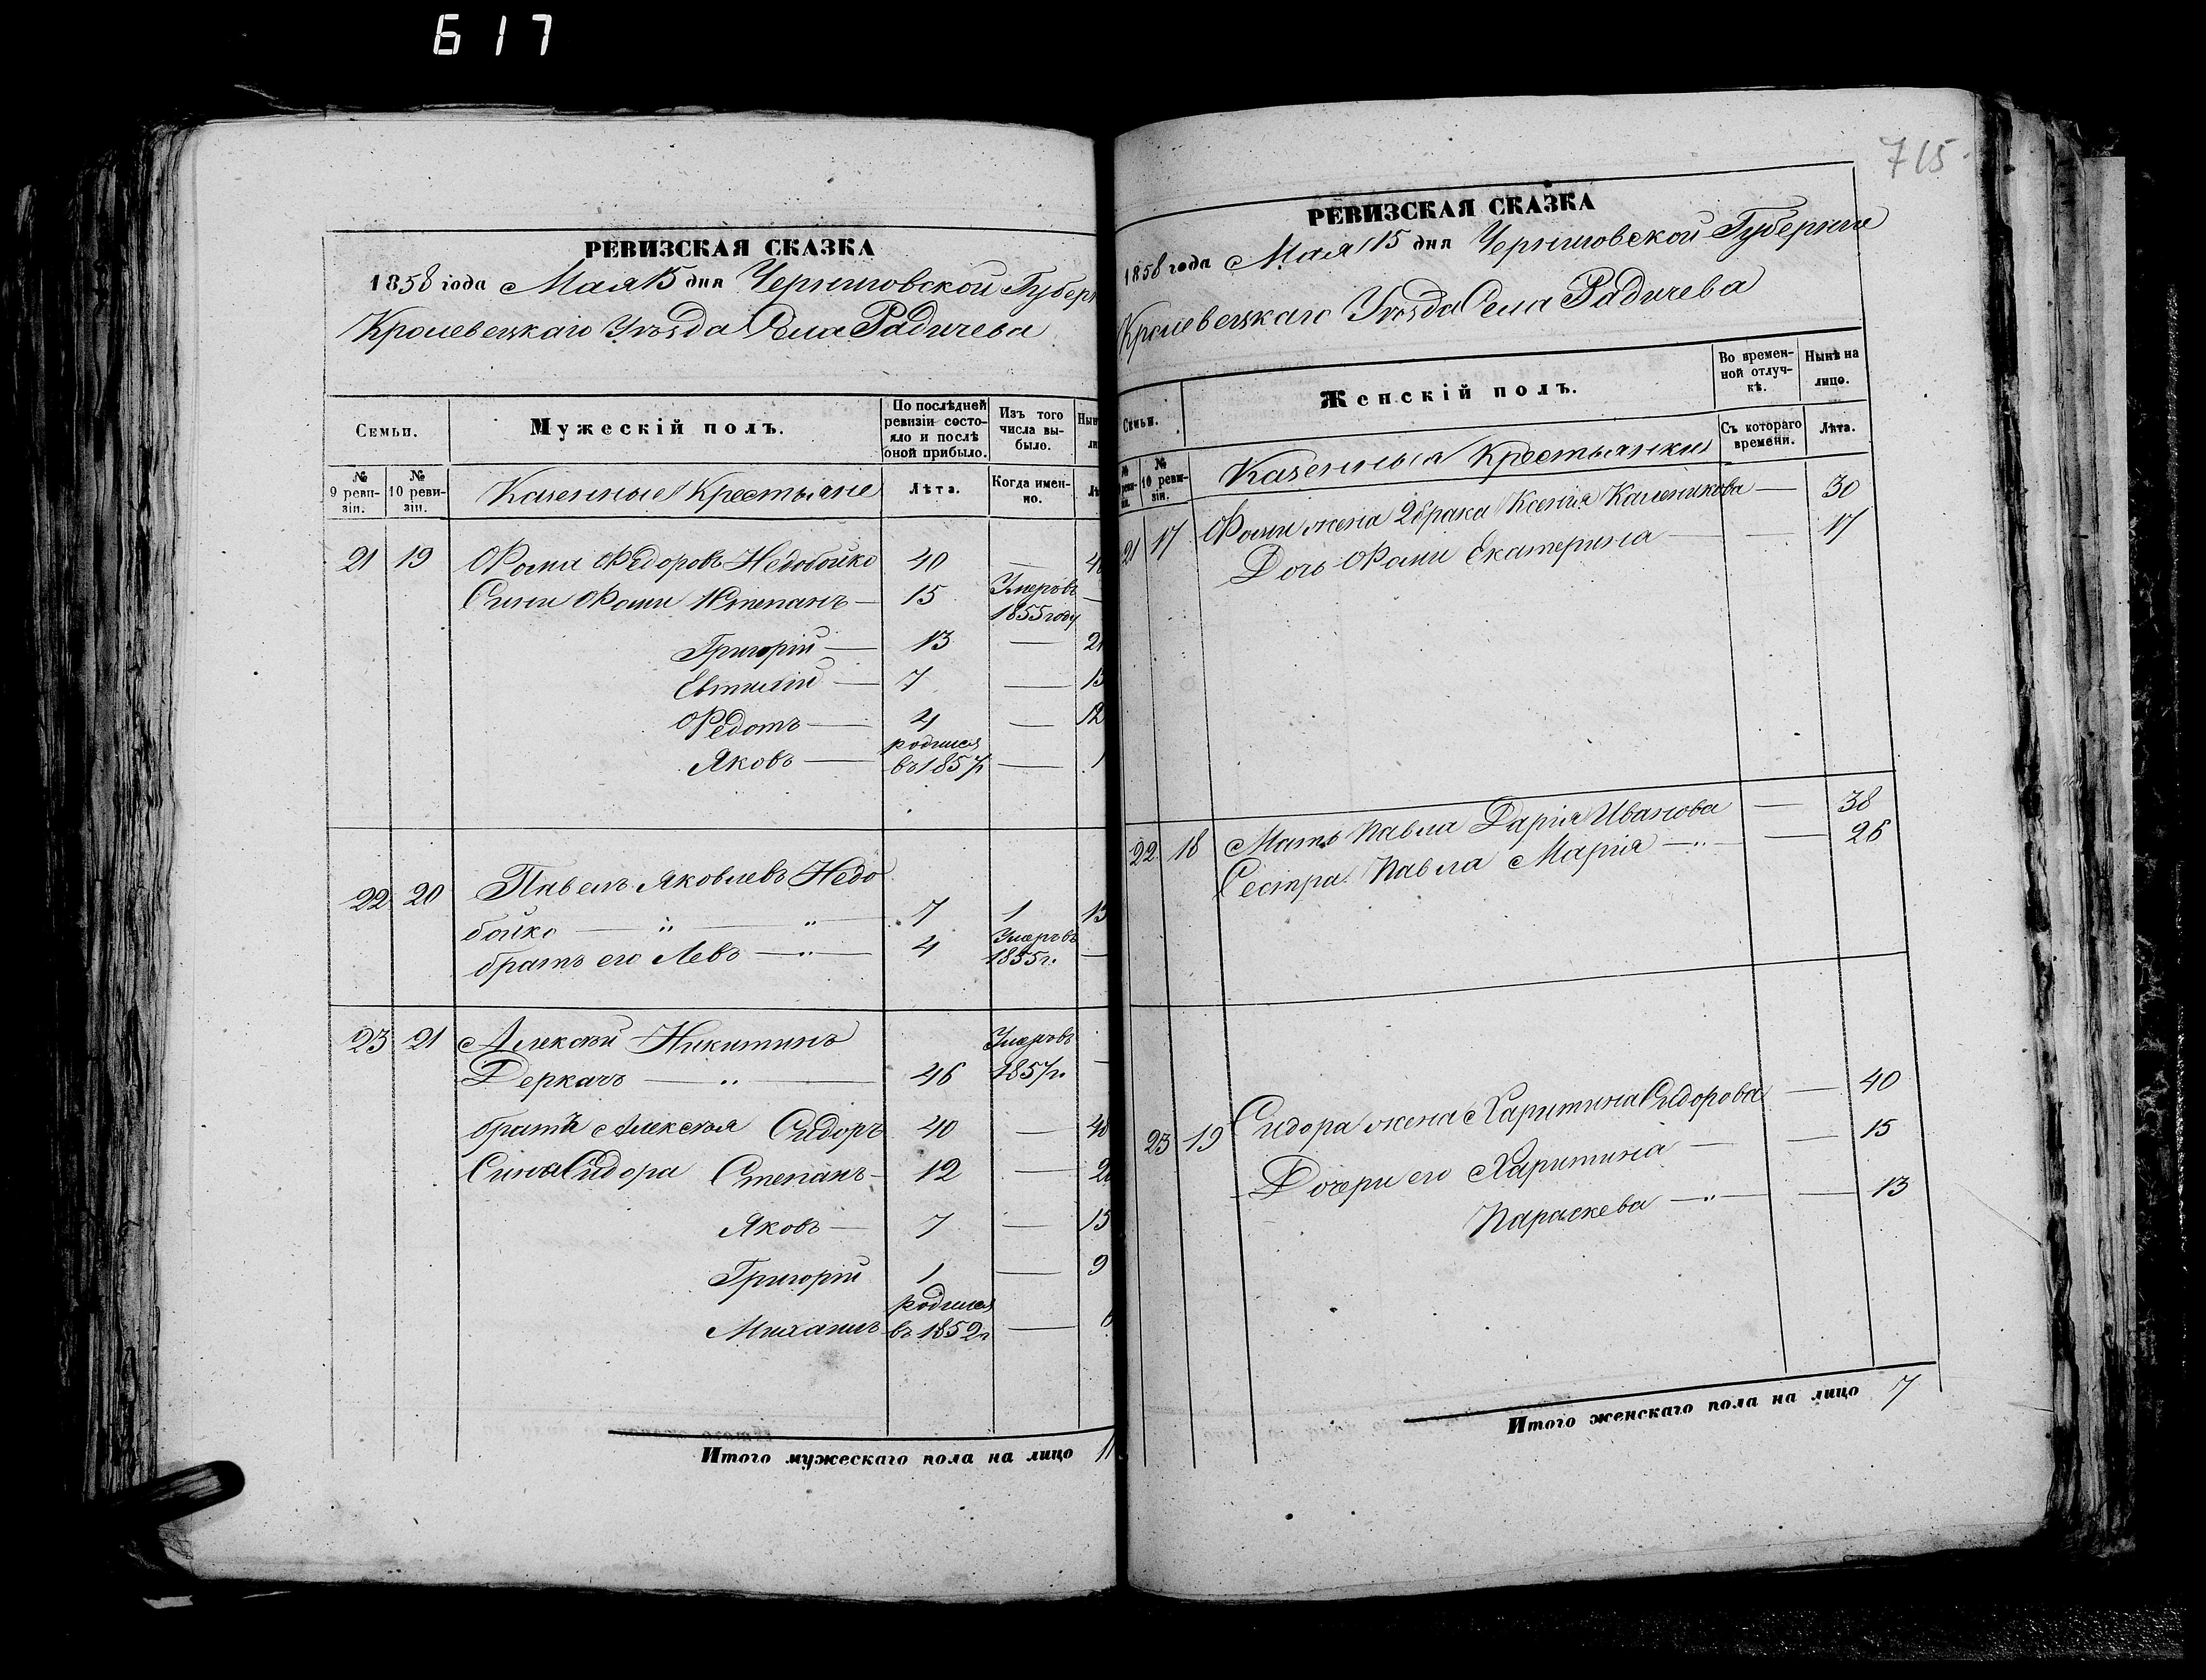 617
РЕВИЗСКАЯ СКАЗКА
1858 года Мая 15 дня Черниговской Губер
Кролевецкаго Уѣзда Села Радичева
Семьи.
Мужескій полъ.
По послѣдней ревизіи состояло и послѣ оной прибыло.
Изъ того числа выбыло.
Нын
ли
№ 9 ревизіи.
№ 10 ревизіи.
Казенные Крестьяне
Лѣта.
Когда именно.
Лѣ
21 19 Фома Федоровъ Недобойко 40 — 4
Сыни Фоми 1 Степанъ — 15 Умеръ въ 1855 году —
Григорій — 13 — 21
Евтихій — 7 — 15
Федотъ — 4 — 12
Яковъ — родился въ 1857 г — 1
22 20 Павелъ Яковлевъ Недо
бойко — " — " — 7 1 15
братъ его Левъ — " — 4 Умеръ въ 1855 г. —
23 21 Алексѣй Никитинъ
Деркачъ — " — 46 Умеръ въ 1857 г. —
братъ Алексѣя Сидоръ 40 — 48
Сыны Сидора Степанъ — 12 — 20
Яковъ — 7 — 15
Григорій 1 — 9
Михаилъ родился въ 1852 г — 6
Итого мужескаго пола на лицо 11
715
РЕВИЗСКАЯ СКАЗКА
1858 года Мая 15 дня Черниговской Губерніи
Кролевецкаго Уѣзда Села Радичева
Семьи.
Женскій полъ.
Во временной отлучкѣ.
Нынѣ на лицо.
№ 9 ревизіи.
№ 10 ревизіи.
Казенныя Крестьянки
Съ котораго времени.
Лѣта.
21 17 Фоми жена 2 брака Ксенія Каленикова — 30
Дочь Фоми Екатерина — — 17
22 18 Мать Павла Дарія Иванова — 38
Сестра Павла Марія — " — — 26
23 19 Сидора жена Харитина Сидорова — 40
Дочери его Харитина — — 15
Параскева — " — — 13
Итого женскаго пола на лицо 7